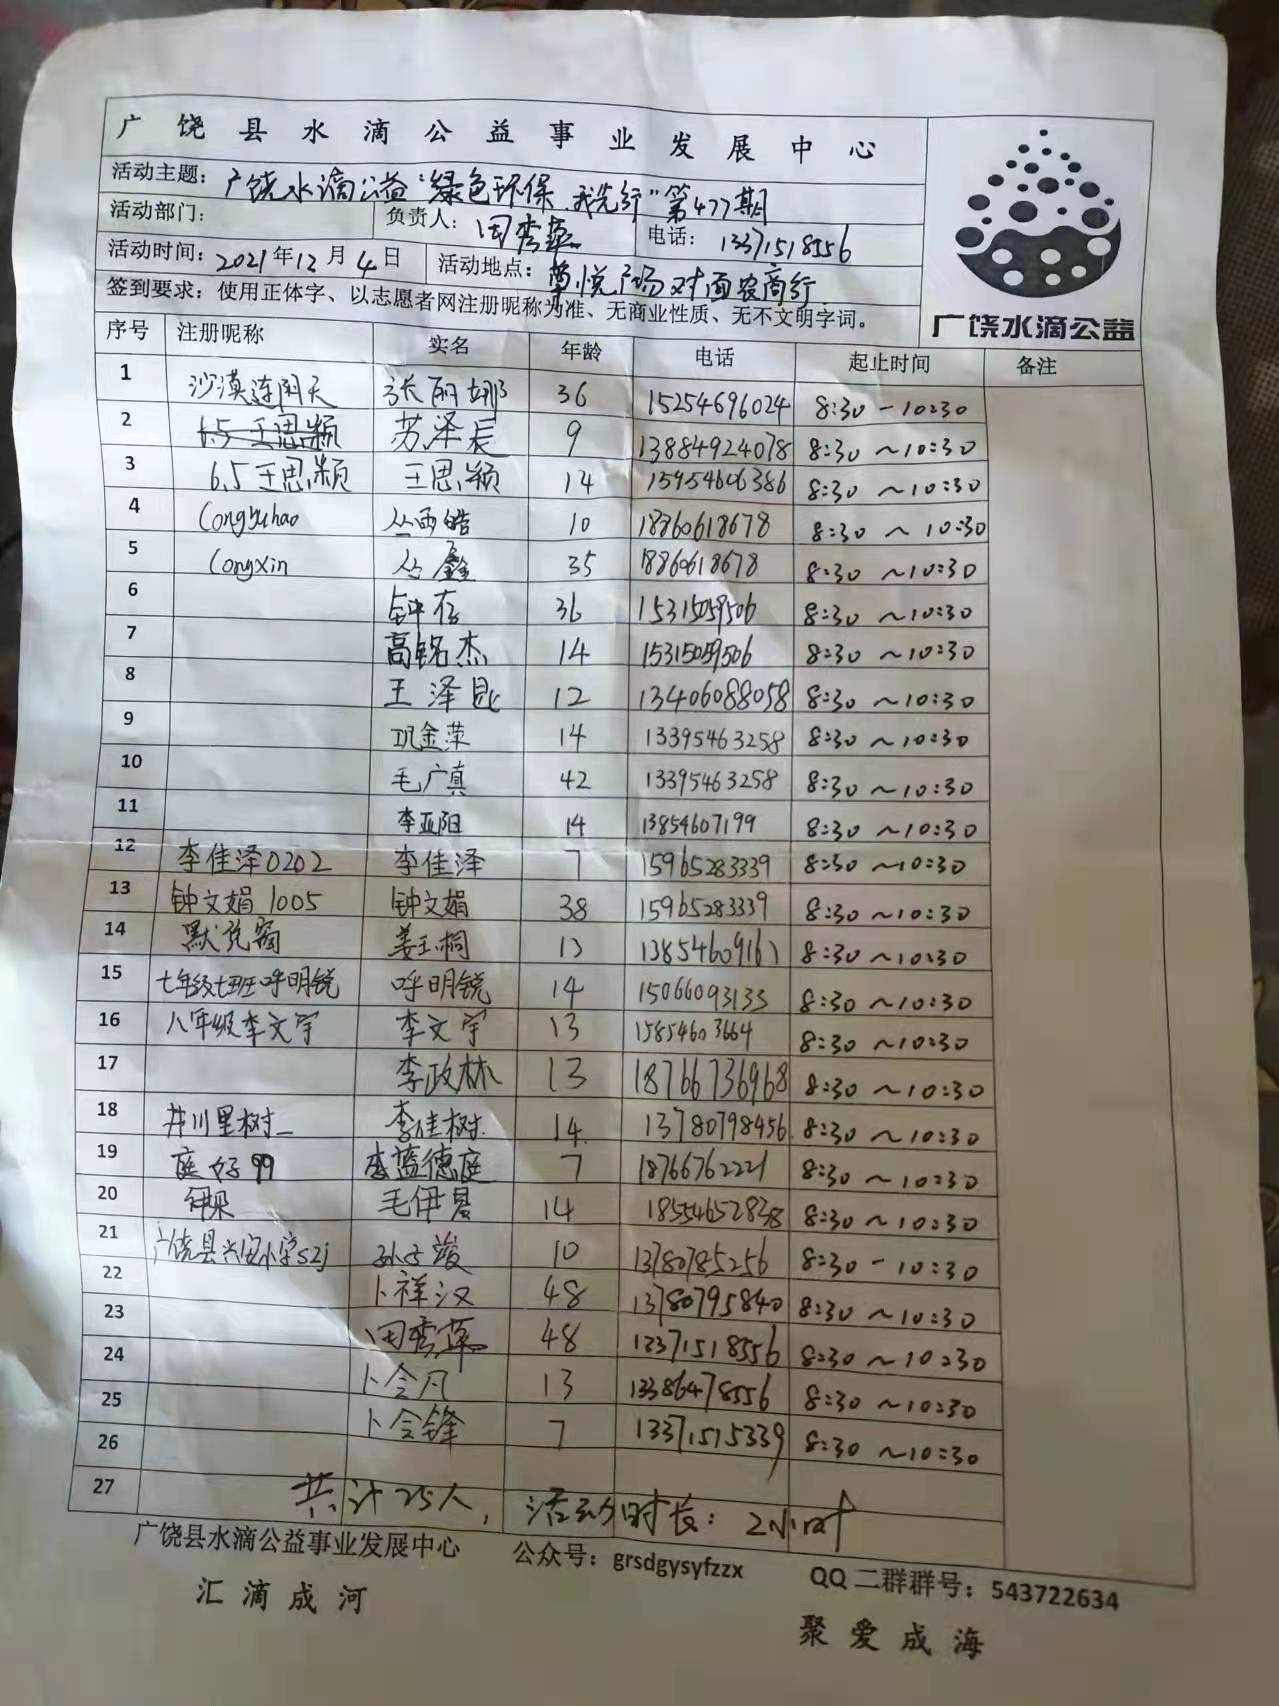 广饶县水滴公益事业发展中心
活动主题：广饶水滴公益"绿色环保 我先行"第477期
活动部门： 负责人：田秀燕 电话：13371518556
活动时间：2021年12月4日 活动地点：尊悦广场对面农商行
签到要求：使用正体字、以志愿者网注册昵称为准、无商业性质、无不文明字词。
广饶水滴公益
序号 注册昵称 实名 年龄 电话 起止时间 备注
1 沙漠连闲天 张丽娜 36 15254696024 8:30-10:30
2 6.5王思颖 苏泽辰 9 13884924078 8:30~10:30
3 6.5王思颖 王思颖 14 15954606386 8:30~10:30
4 Congyuhao 丛雨皓 10 18860618678 8:30~10:30
5 Congxin 丛鑫 35 18860618678 8:30~10:30
6 钟存 36 15315059506 8:30~10:30
7 高铭杰 14 15315059506 8:30~10:30
8 王泽 12 13406088058 8:30~10:30
9 巩金萍 14 13395463258 8:30~10:30
10 毛广真 42 13395463258 8:30~10:30
11 李亚阳 14 13854607199 8:30~10:30
12 李佳泽0202 李佳泽 7 15965283339 8:30~10:30
13 钟文娟1005 钟文娟 38 15965283339 8:30~10:30
14 姜玉桐 13 8:30~10:30
15 七年级七班呼明锐 呼明锐 14 15066093133 8:30~10:30
16 八年级李文宇 李文宇 13 15854603664 8:30~10:30
17 李政林 13 18766736968 8:30~10:30
18 井川里树_ 李佳树 14 13780798456 8:30~10:30
19 庭好99 李蓝德庭 7 18766762221 8:30~10:30
20 毛伊晨 14 18554652838 8:30~10:30
21 广饶县兴安小学szj 孙子竣 10 13780785256 8:30-10:30
22 卜祥汉 48 13780795840 8:30~10:30
23 田秀燕 48 13371518556 8:30~10:30
24 卜令凡 13 13386478556 8:30~10:30
25 卜令锋 7 13371515339 8:30~10:30
26
27 共计25人，活动时长：2小时
广饶县水滴公益事业发展中心 公众号：grsdgysyfzzx QQ二群群号：543722634
汇滴成河
聚爱成海